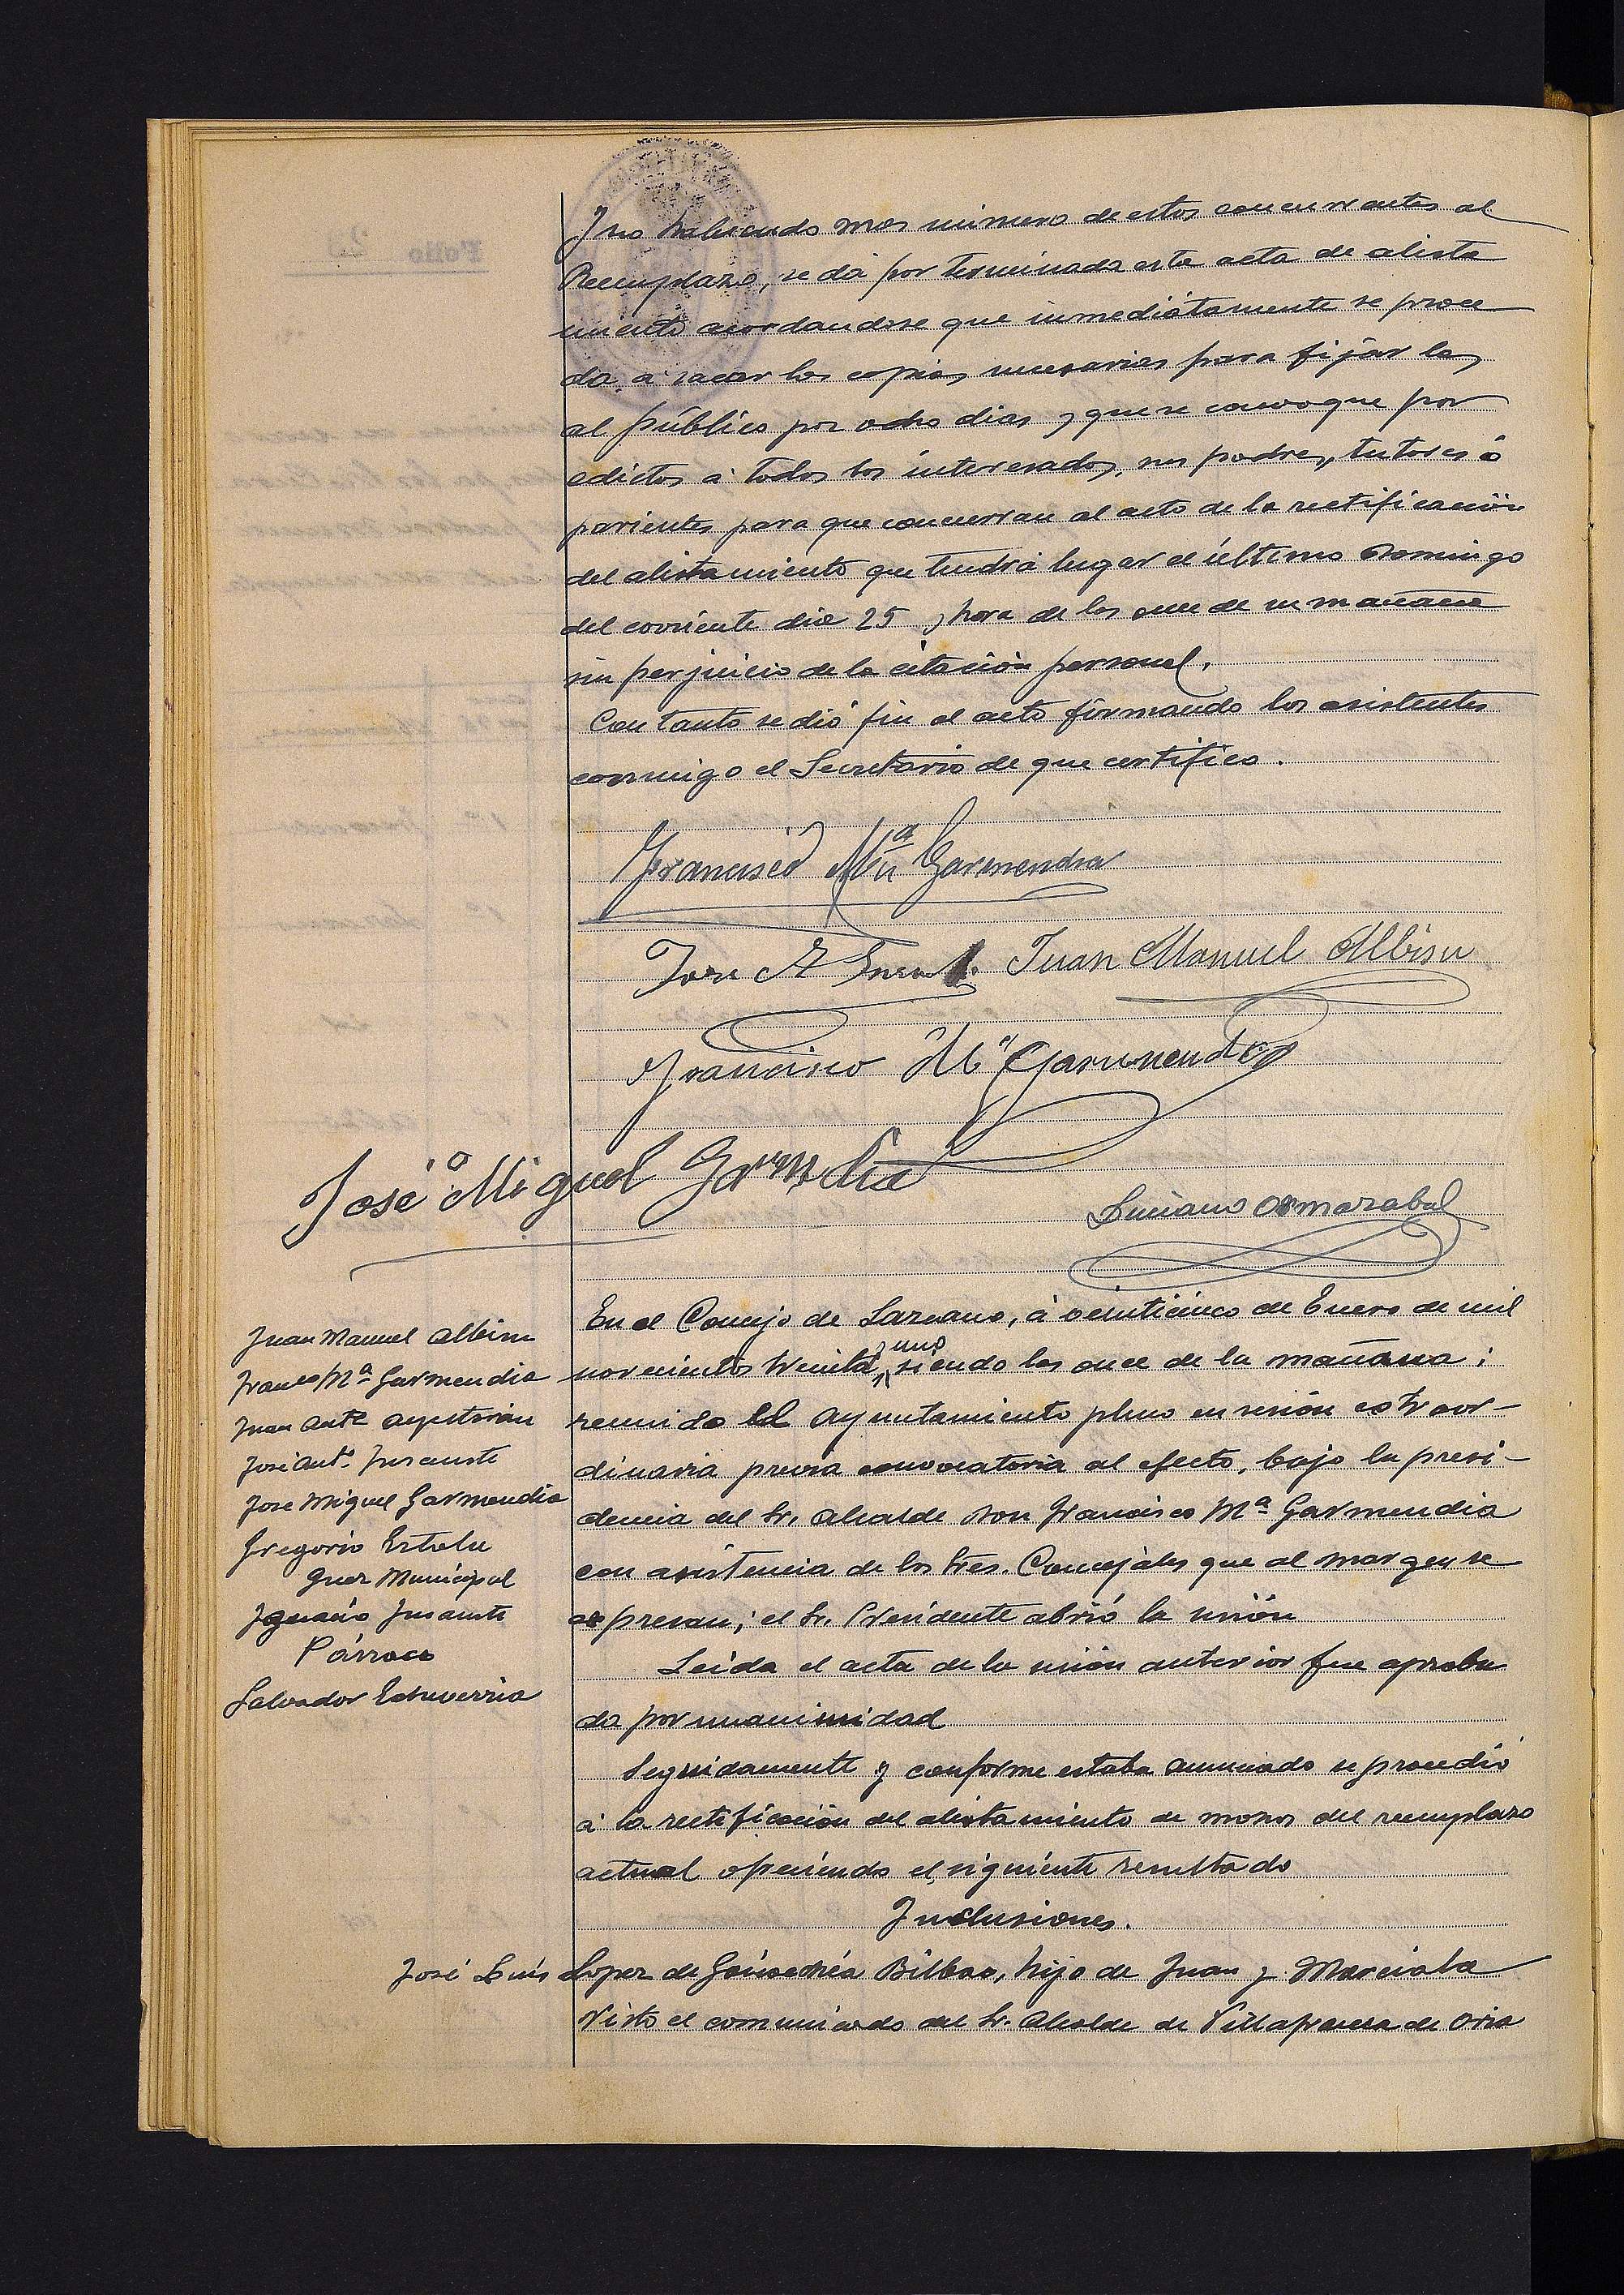 Y no habiendo mas número de estos concurrentes al
Reemplazo, se dá por terminada esta acta de alista
miento acordandose que inmediatamente se proce
da á sacar las copias necesarias para fijar las
al público por ocho dias y que se convoque por
edictos á todos los interesados, sus padres, tutores ó
parientes para que concurran al acto de la rectificación
del alistamiento que tendrá lugar el último Domingo
del corriente dia 25 y hora de las once de su mañana
sin perjuicio de la citación personal.
Con tanto se dió fin al acto firmando los asistentes
conmigo el Secretario de que certifico.
Francisco Mª Garmendia
Jose A Juan Manuel Albisu
Francisco Mª Garmendia
José Miguel Garmendia
Luciano Ormazabal
Juan Manuel Albisu
Franco Mª Garmendia
Juan Antº Aguiriano
José Antº Insausti
Jose Miguel Garmendia
Gregorio Estala
Juez Municipal
Ignacio Insausti
Párroco
Salvador Echeverria
En el Concejo de Lazcano, á veinticinco de Enero de mil
novecientos treinta y uno, siendo las once de la mañana;
reunido el Ayuntamiento pleno en sesión estraor-
dinaria previa convocatoria al efecto, bajo la presi-
dencia del Sr. Alcalde Don Francisco Mª Garmendia
con asistencia de los Sres. Concejales que al margen se
espresan; el Sr. Presidente abrió la sesión
Leida el acta de la sesión anterior fue aproba
da por unanimidad
Seguidamente y conforme estaba anunciado se procedió
á la rectificación del alistamiento de mozos del reemplazo
actual ofreciendo el siguiente resultado
Inclusiones.
José Luis Lopez de Goicoechea Bilbao, hijo de Juan y Marciala
Visto el comunicado del Sr. Alcalde de Villafranca de Oria